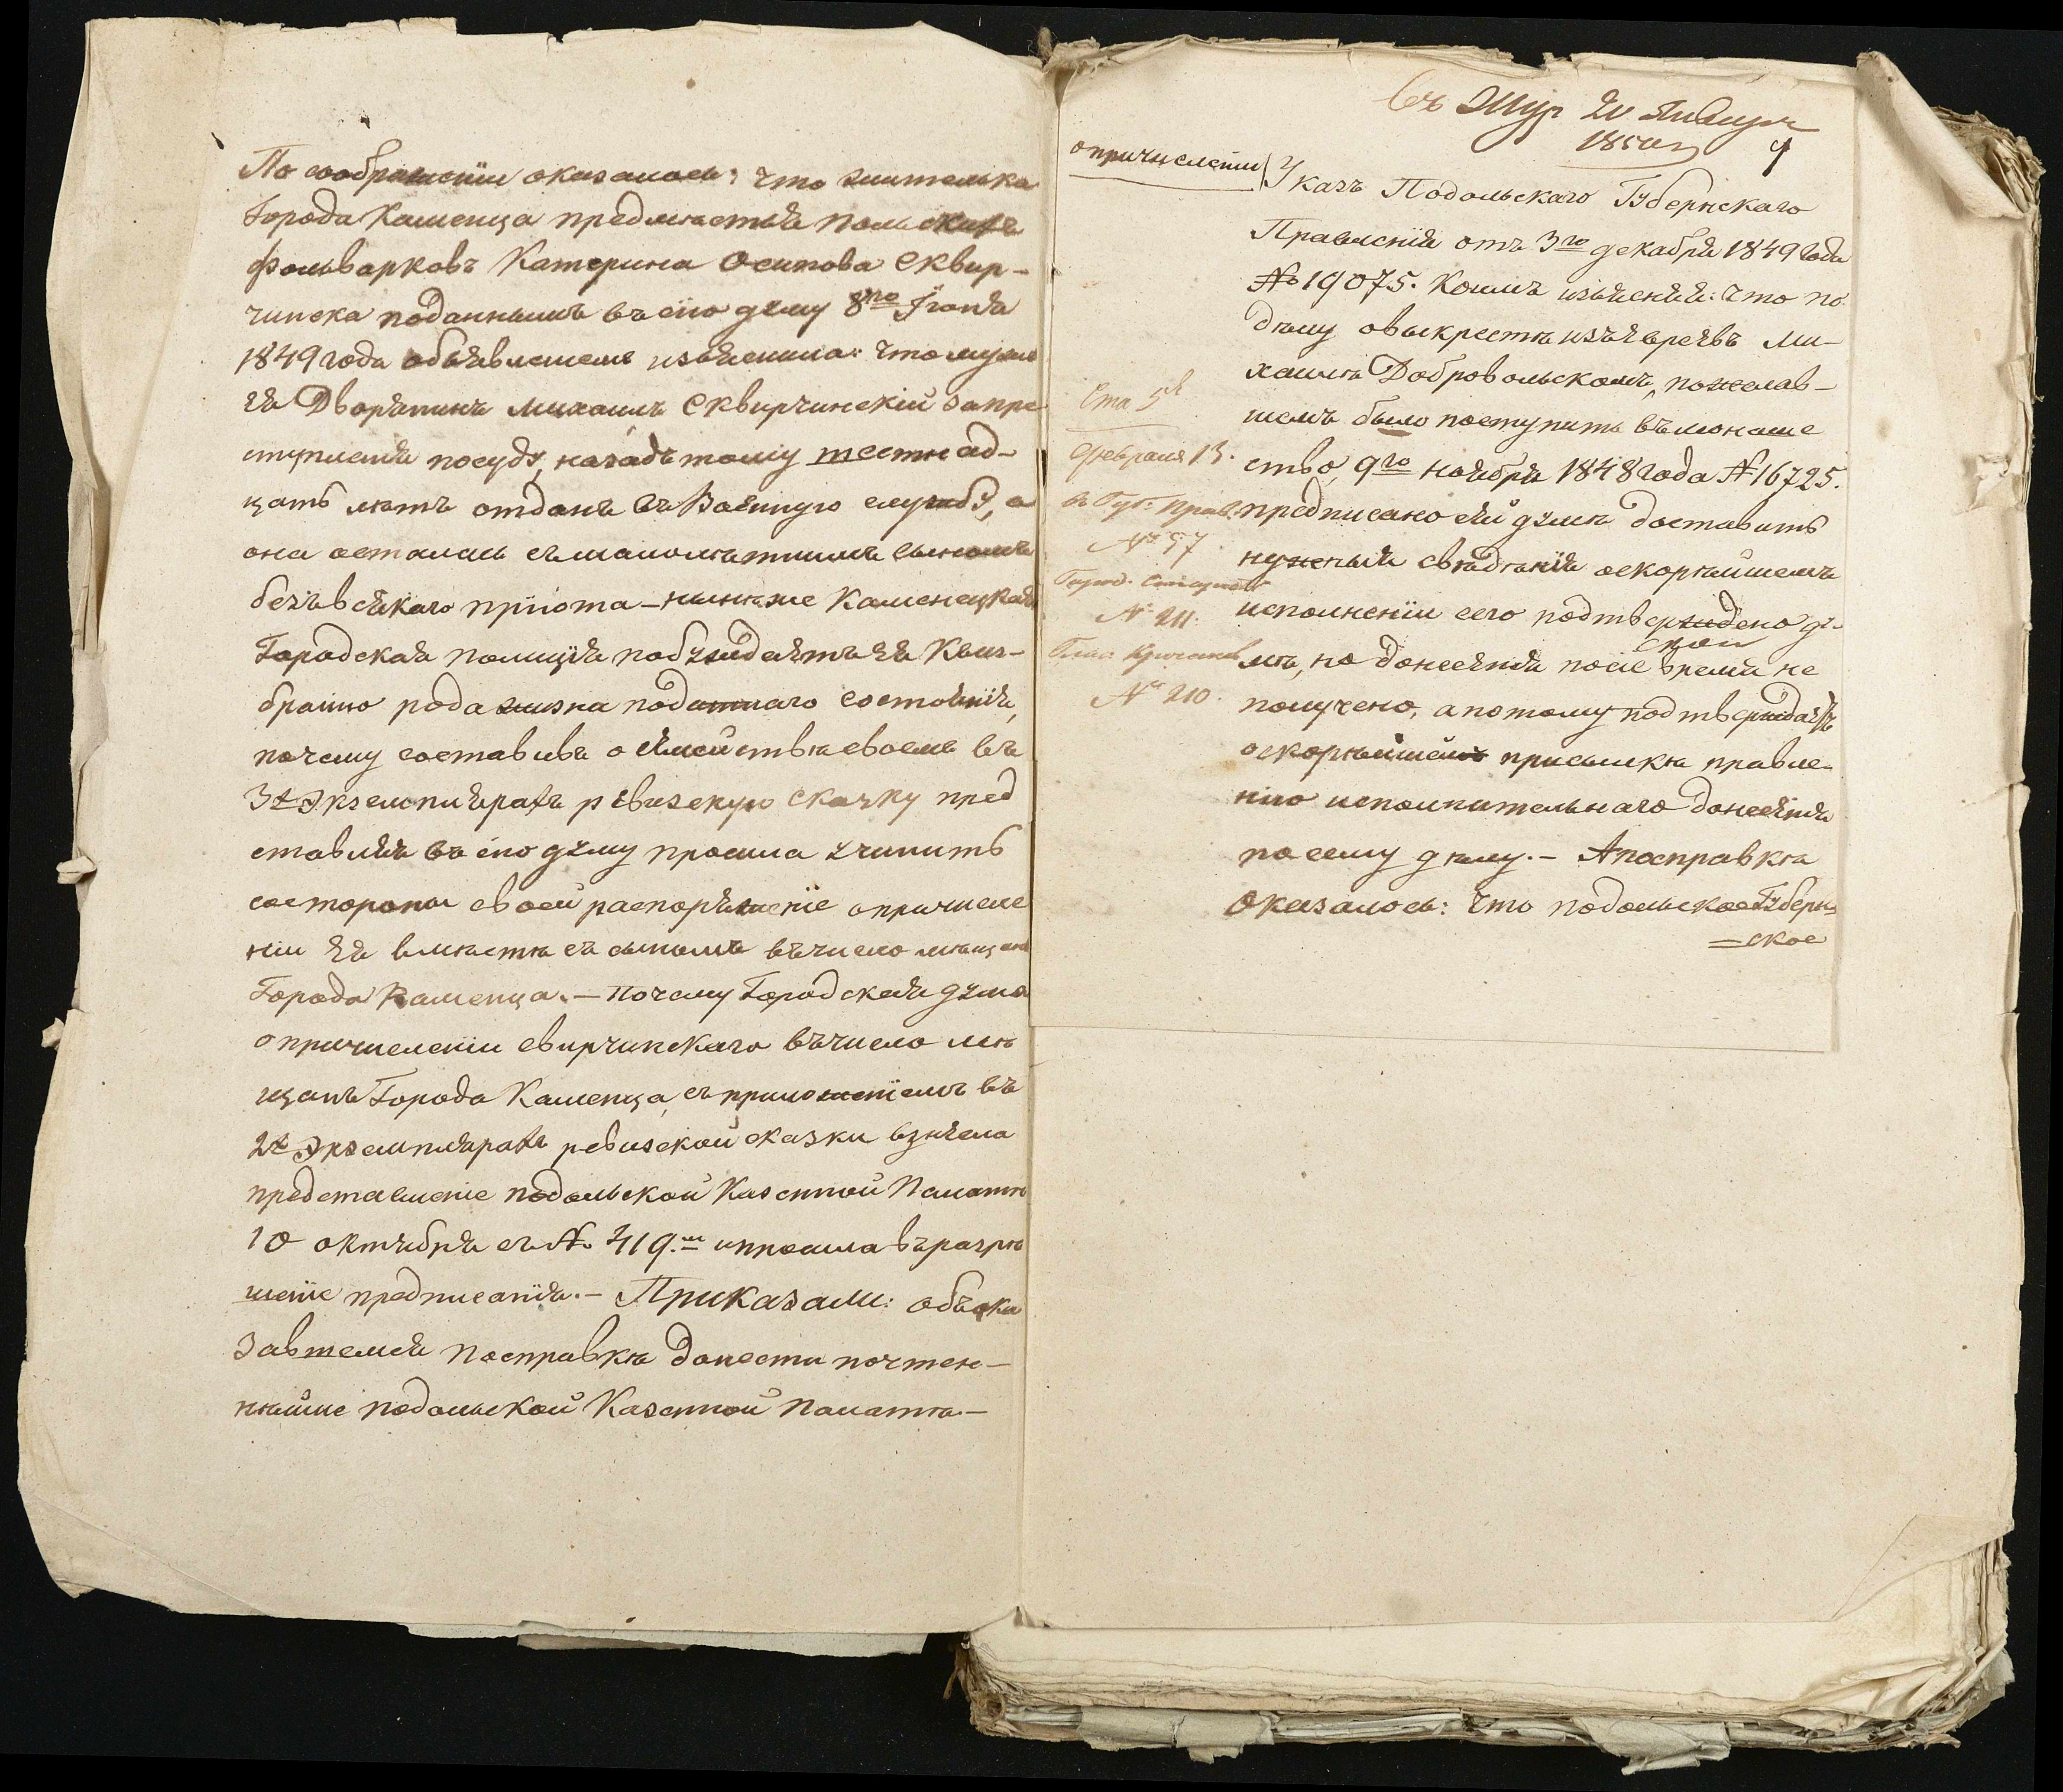 По соображеніи оказалось: что жителька
Города Каменца предмѣстья польскихъ
фольварковъ Катерина Осипова Сквир-
чинска поданнымъ въ сію думу 8го Іюня
1849 года объявленіемъ изъяснила: что мужъ
ея Дворянинъ Михаилъ Сквирчинскій за пре
ступленія посуду, назадъ тому шестнад-
цать лѣтъ отданъ въ Военную службу, а
она осталась съ малолѣтнимъ сыномъ
безъ всякаго пріюта – нынѣ же Каменецкая
Городская полиція побуждаетъ ея къ из-
бранію рода жизни податнаго состоянія,
почему составивъ о семействѣ своемъ въ
3х экземплярахъ ревизскую сказку пред
ставляя въ сію думу просила учинить
со стороны своей распоряженіе о причисле
ніи ея вмѣстѣ съ сыномъ въ число мѣщанъ
Города Каменца. – Почему Городская дума
о причисленіи Свирчинскаго въ число мѣ
щанъ Города Каменца, съ приложеніемъ въ
2х экземплярахъ ревизской сказки взнесла
представленіе подольской Казенной Палатѣ
10 октября съ № 419.м и просила въ разрѣ
шеніе предписанія. – Приказали: объ ока
завшемся по справкѣ донести почтен-
нѣйше подольской Казенной Палатѣ. –
Въ Жур. Января
1850 9
о причисленіи
Указъ Подольскаго Губернскаго
Правленія отъ 3го декабря 1849 года
№ 19075. Коимъ изъясняя: что по
дѣлу о выкрестѣ изъ евреевъ Ми-
хаилѣ Добровольскомъ, пожелав-
шемъ было поступить въ монаше
ство, 9го ноября 1848 года № 16725.
предписано сей думѣ доставить
нужныя свѣдѣнія о скорѣйшемъ
исполненіи сего подтверждено ду-
мѣ, но донесенія по сіе время не
получено, а потому подтверждаетъ
о скорѣйшемъ присылкѣ правле-
нію исполнительнаго донесенія
по сему дѣлу. – А по справкѣ
Оказалось: что подольское Губерн-
– ское
Ст. 5
Февраля 13.
въ Губ. Прав.
№ 57
Город.
№ 211.
№ 210.